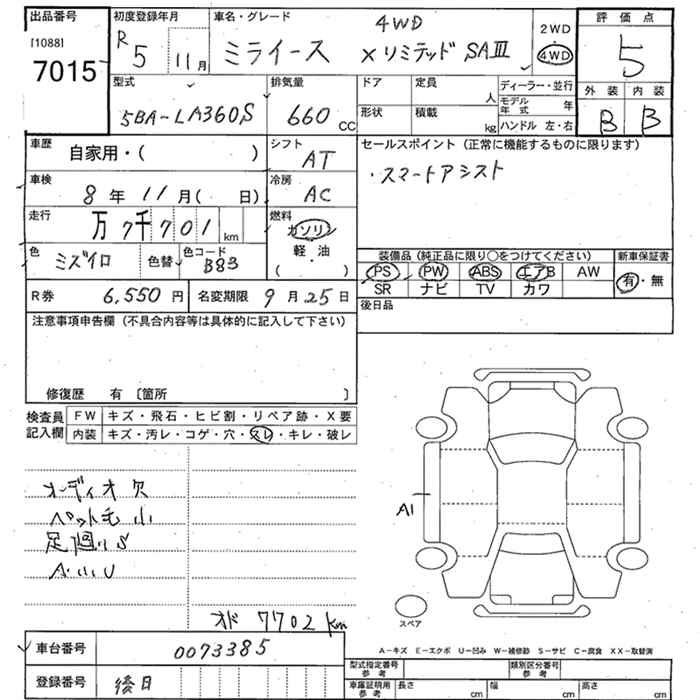 出品番号 初度登録年月 車名・グレード 4WD 2WD 評価点
[1088] R 5 11月 ミライース X リミテッド SAⅢ 4WD 5
7015
型式 排気量 ドア 定員 人 ディーラー・並行 外装 内装
モデル年式 年
5BA-LA360S 660 CC 形状 積載 kg ハンドル 左・右 B B
車歴 自家用・( ) シフト AT セールスポイント (正常に機能するものに限ります)
・スマートアシスト
車検 8年 11月( 日) 冷房 AC
走行 万 7千 701 km 燃料 ガソリン
軽・油
( )
色 ミズイロ 色替 色コード B83
装備品 (純正品に限り〇をつけてください) 新車保証書
PS PW ABS エアB AW 有・無
SR ナビ TV カワ
R券 6,550円 名変期限 9月25日 後日品
注意事項申告欄 (不具合内容等は具体的に記入して下さい)
修復歴 有 〔箇所 〕
検査員記入欄 FW キズ・飛石・ヒビ割・リペア跡・X要
内装 キズ・汚レ・コゲ・穴・スレ・キレ・破レ
オーディオ欠
ペット毛 小
足廻りS
A小小U
A1
オド 7702 km
スペア
A-キズ E-エクボ U-凹み W-補修跡 S-サビ C-腐食 XX-取替済
車台番号 0073385
型式指定番号 参考 類別区分番号 参考
登録番号 後日
車庫証明用 参考 長さ cm 幅 cm 高さ cm